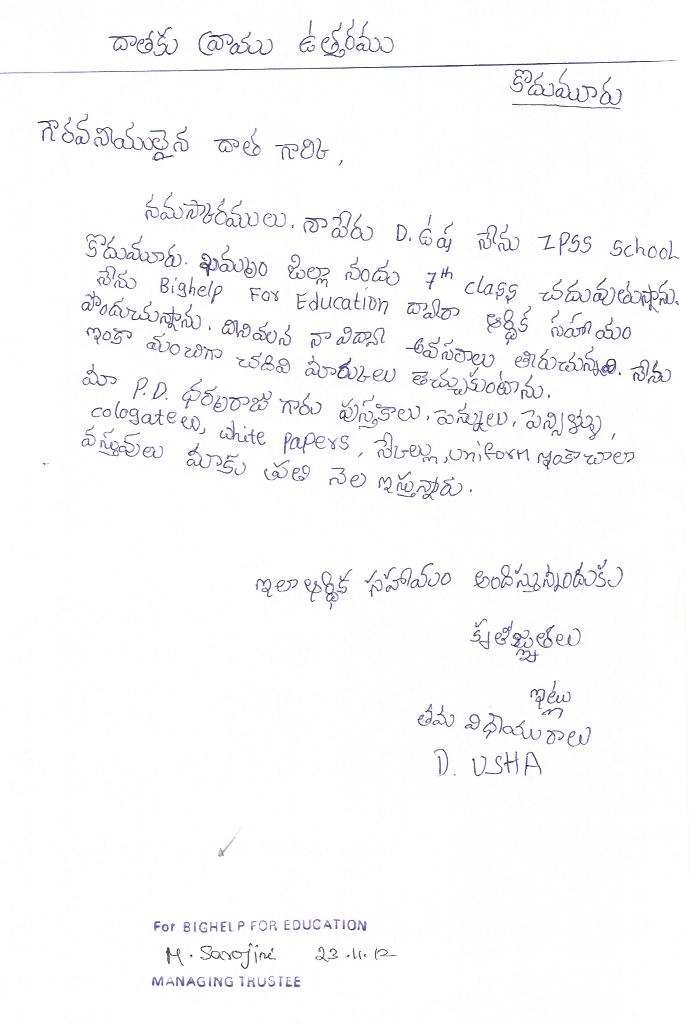 దాతకు వ్రాయు ఉత్తరము
కొదుమూరు
గౌరవనీయులైన దాత గారికి,
నమస్కారములు. నా పేరు D. ఉష నేను ZPSS School
కొదుమూరు. ఖమ్మం జిల్లా నందు 7th class చదువుతున్నాను.
నేను Bighelp For Education ద్వారా ఆర్థిక సహాయం
పొందుచున్నాను. దీనివలన నా విద్యా అవసరాలు తీరుచున్నవి. నేను
ఇంకా మంచిగా చదివి మార్కులు తెచ్చుకుంటాను.
మా P.D. ధర్మరాజు గారు పుస్తకాలు, పెన్నులు, పెన్సిళ్ళు,
cologateలు, white papers, నోట్సులు, uniform ఇంకా చాలా
వస్తువులు మాకు ప్రతి నెల ఇస్తున్నారు.
ఇలా ఆర్థిక సహాయం అందిస్తున్నందుకు
కృతజ్ఞతలు
ఇట్లు
తమ విధేయురాలు
D. USHA
For BIGHELP FOR EDUCATION
M. Sarojini 23.11.12
MANAGING TRUSTEE